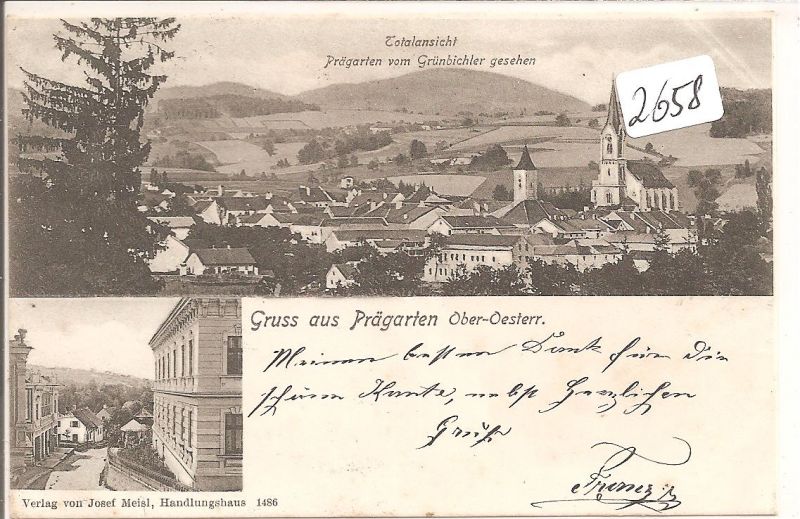 Totalansicht
Prägarten vom Grünbichler gesehen
2658
Gruss aus Prägarten Ober-Oesterr.
Meinen besten Dank für die
schöne Karte, nebst Herzlichen
Gruß
Franz
Verlag von Josef Meisl, Handlungshaus 1486